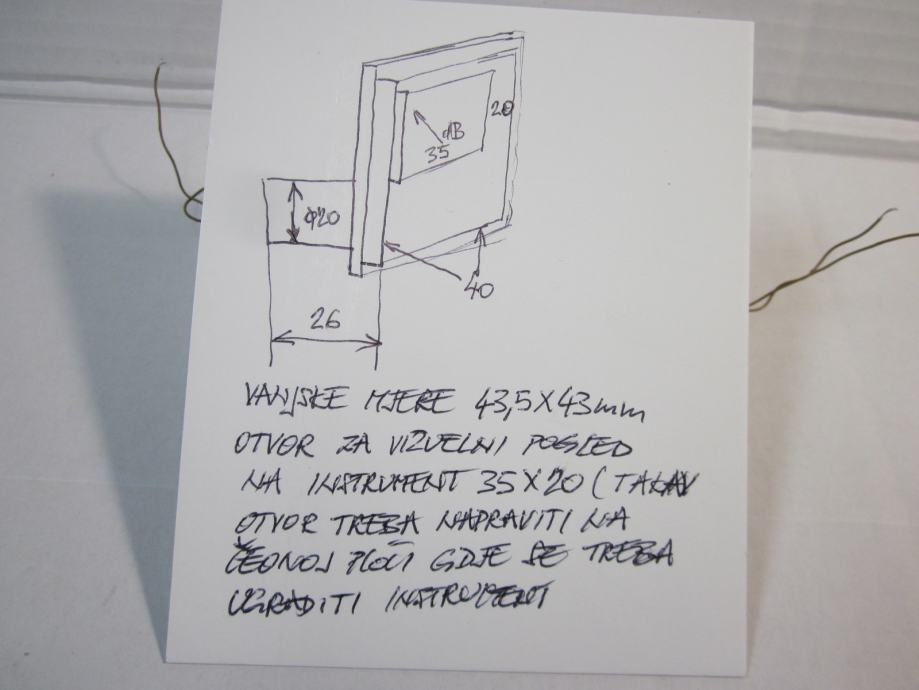 20
dB
35
φ20
40
26
VANJSKE MJERE 43,5X43mm
OTVOR ZA VIZUELNI POGLED
NA INSTRUMENT 35X20 (TAKAV
OTVOR TREBA NAPRAVITI NA
ČEONOJ PLOČI GDJE SE TREBA
UGRADITI INSTRUMENT